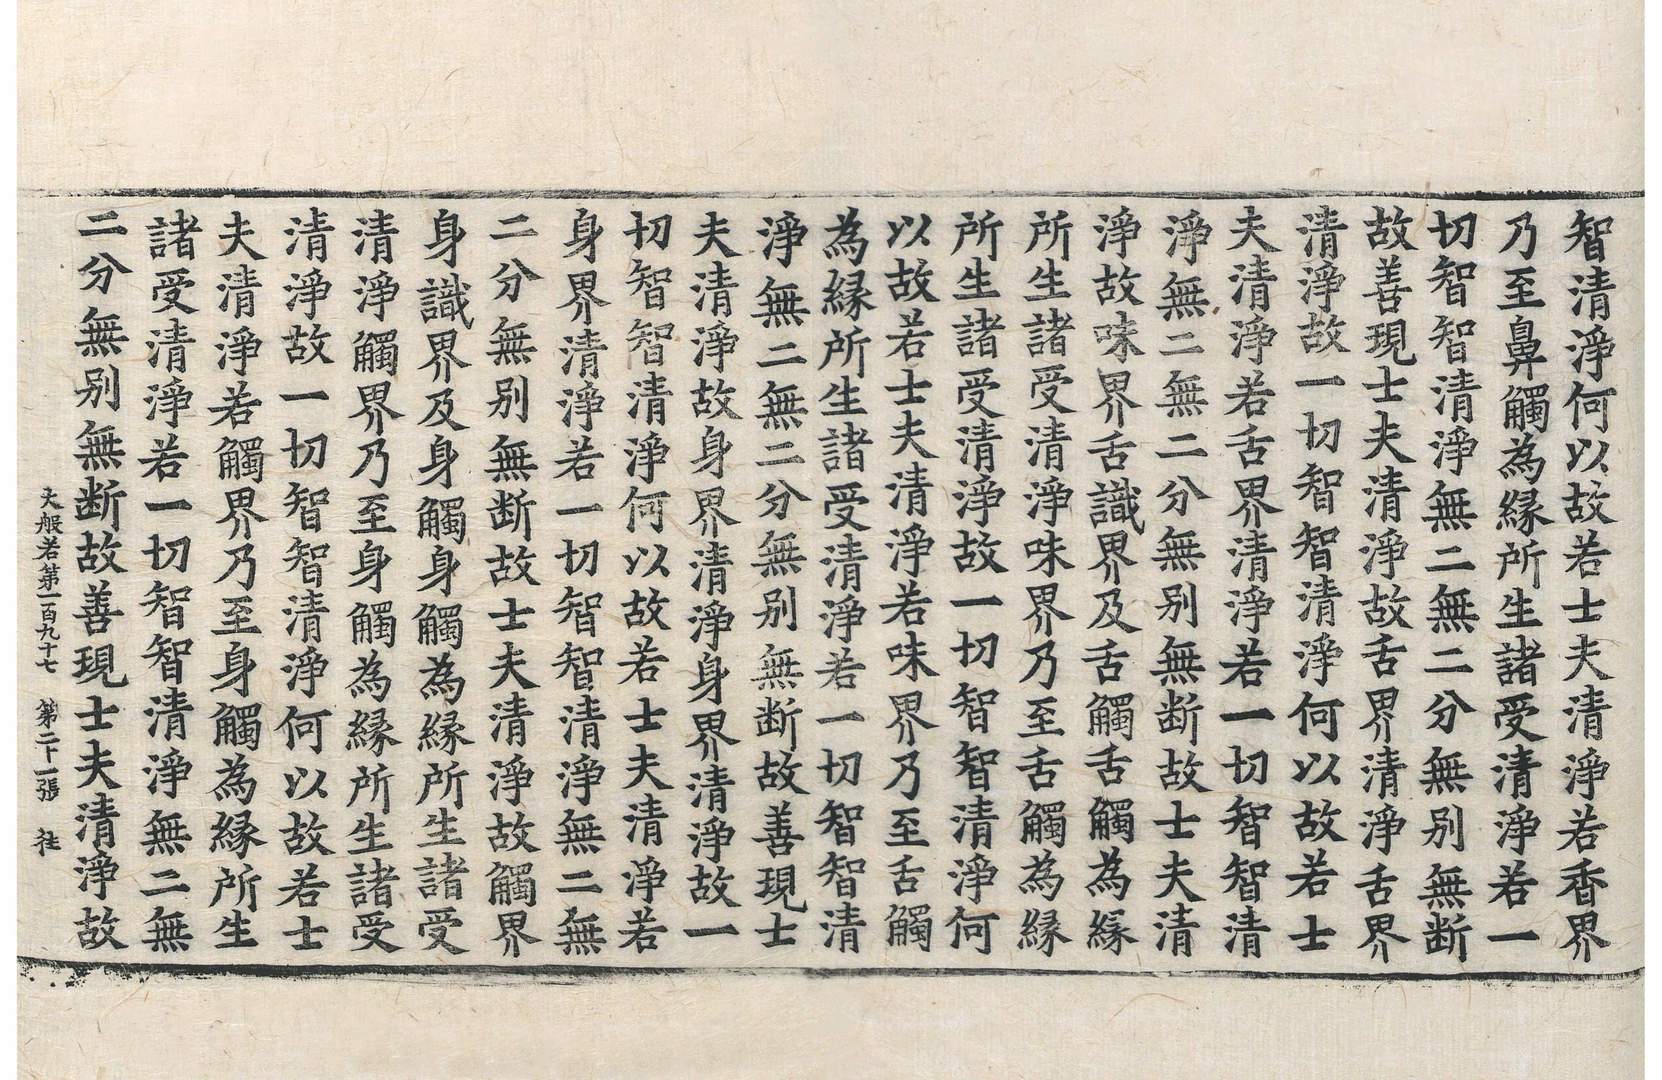 智清淨何以故若士夫清淨若香界
乃至鼻觸為緣所生諸受清淨若一
切智智清淨無二無二分無別無断
故善現士夫清淨故舌界清淨舌界
清淨故一切智智清淨何以故若士
夫清淨若舌界清淨若一切智智清
淨無二無二分無別無断故士夫清
淨故味界舌識界及舌觸舌觸為緣
所生諸受清淨味界乃至舌觸為緣
所生諸受清淨故一切智智清淨何
以故若士夫清淨若味界乃至舌觸
為緣所生諸受清淨若一切智智清
淨無二無二分無別無断故善現士
夫清淨故身界清淨身界清淨故一
切智智清淨何以故若士夫清淨若
身界清淨若一切智智清淨無二無
二分無別無断故士夫清淨故觸界
身識界及身觸身觸為緣所生諸受
清淨觸界乃至身觸為緣所生諸受
清淨故一切智智清淨何以故若士
夫清淨若觸界乃至身觸為緣所生
諸受清淨若一切智智清淨無二無
二分無別無断故善現士夫清淨故
大般若第一百九十七 第二十一張 往